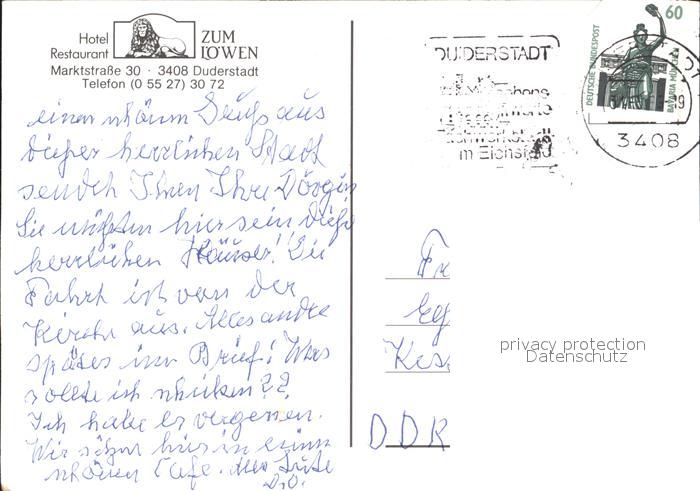 Hotel
Restaurant
ZUM
LÖWEN
Marktstraße 30 · 3408 Duderstadt
Telefon (0 55 27) 30 72
einen schönen Gruß aus
dieser herrlichen Stadt
sendet Ihnen Ihre
Sie müßten hier sein diese
herrlichen Häuser! Die
Fahrt ist von der
Kirche aus. Alles andre
später im Brief! Was
sollte ich schicken??
Ich habe es vergessen.
Wir sitzen hier in einem
schönen Cafe. Alles Gute
D.O.
DUDERSTADT
im Eichsfeld
60
DEUTSCHE BUNDESPOST
BAVARIA MÜNCHEN
3408
Fr
Kes
privacy protection
Datenschutz
DDR